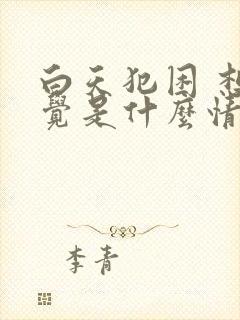 白天犯困 想
覺是什麼情
李青